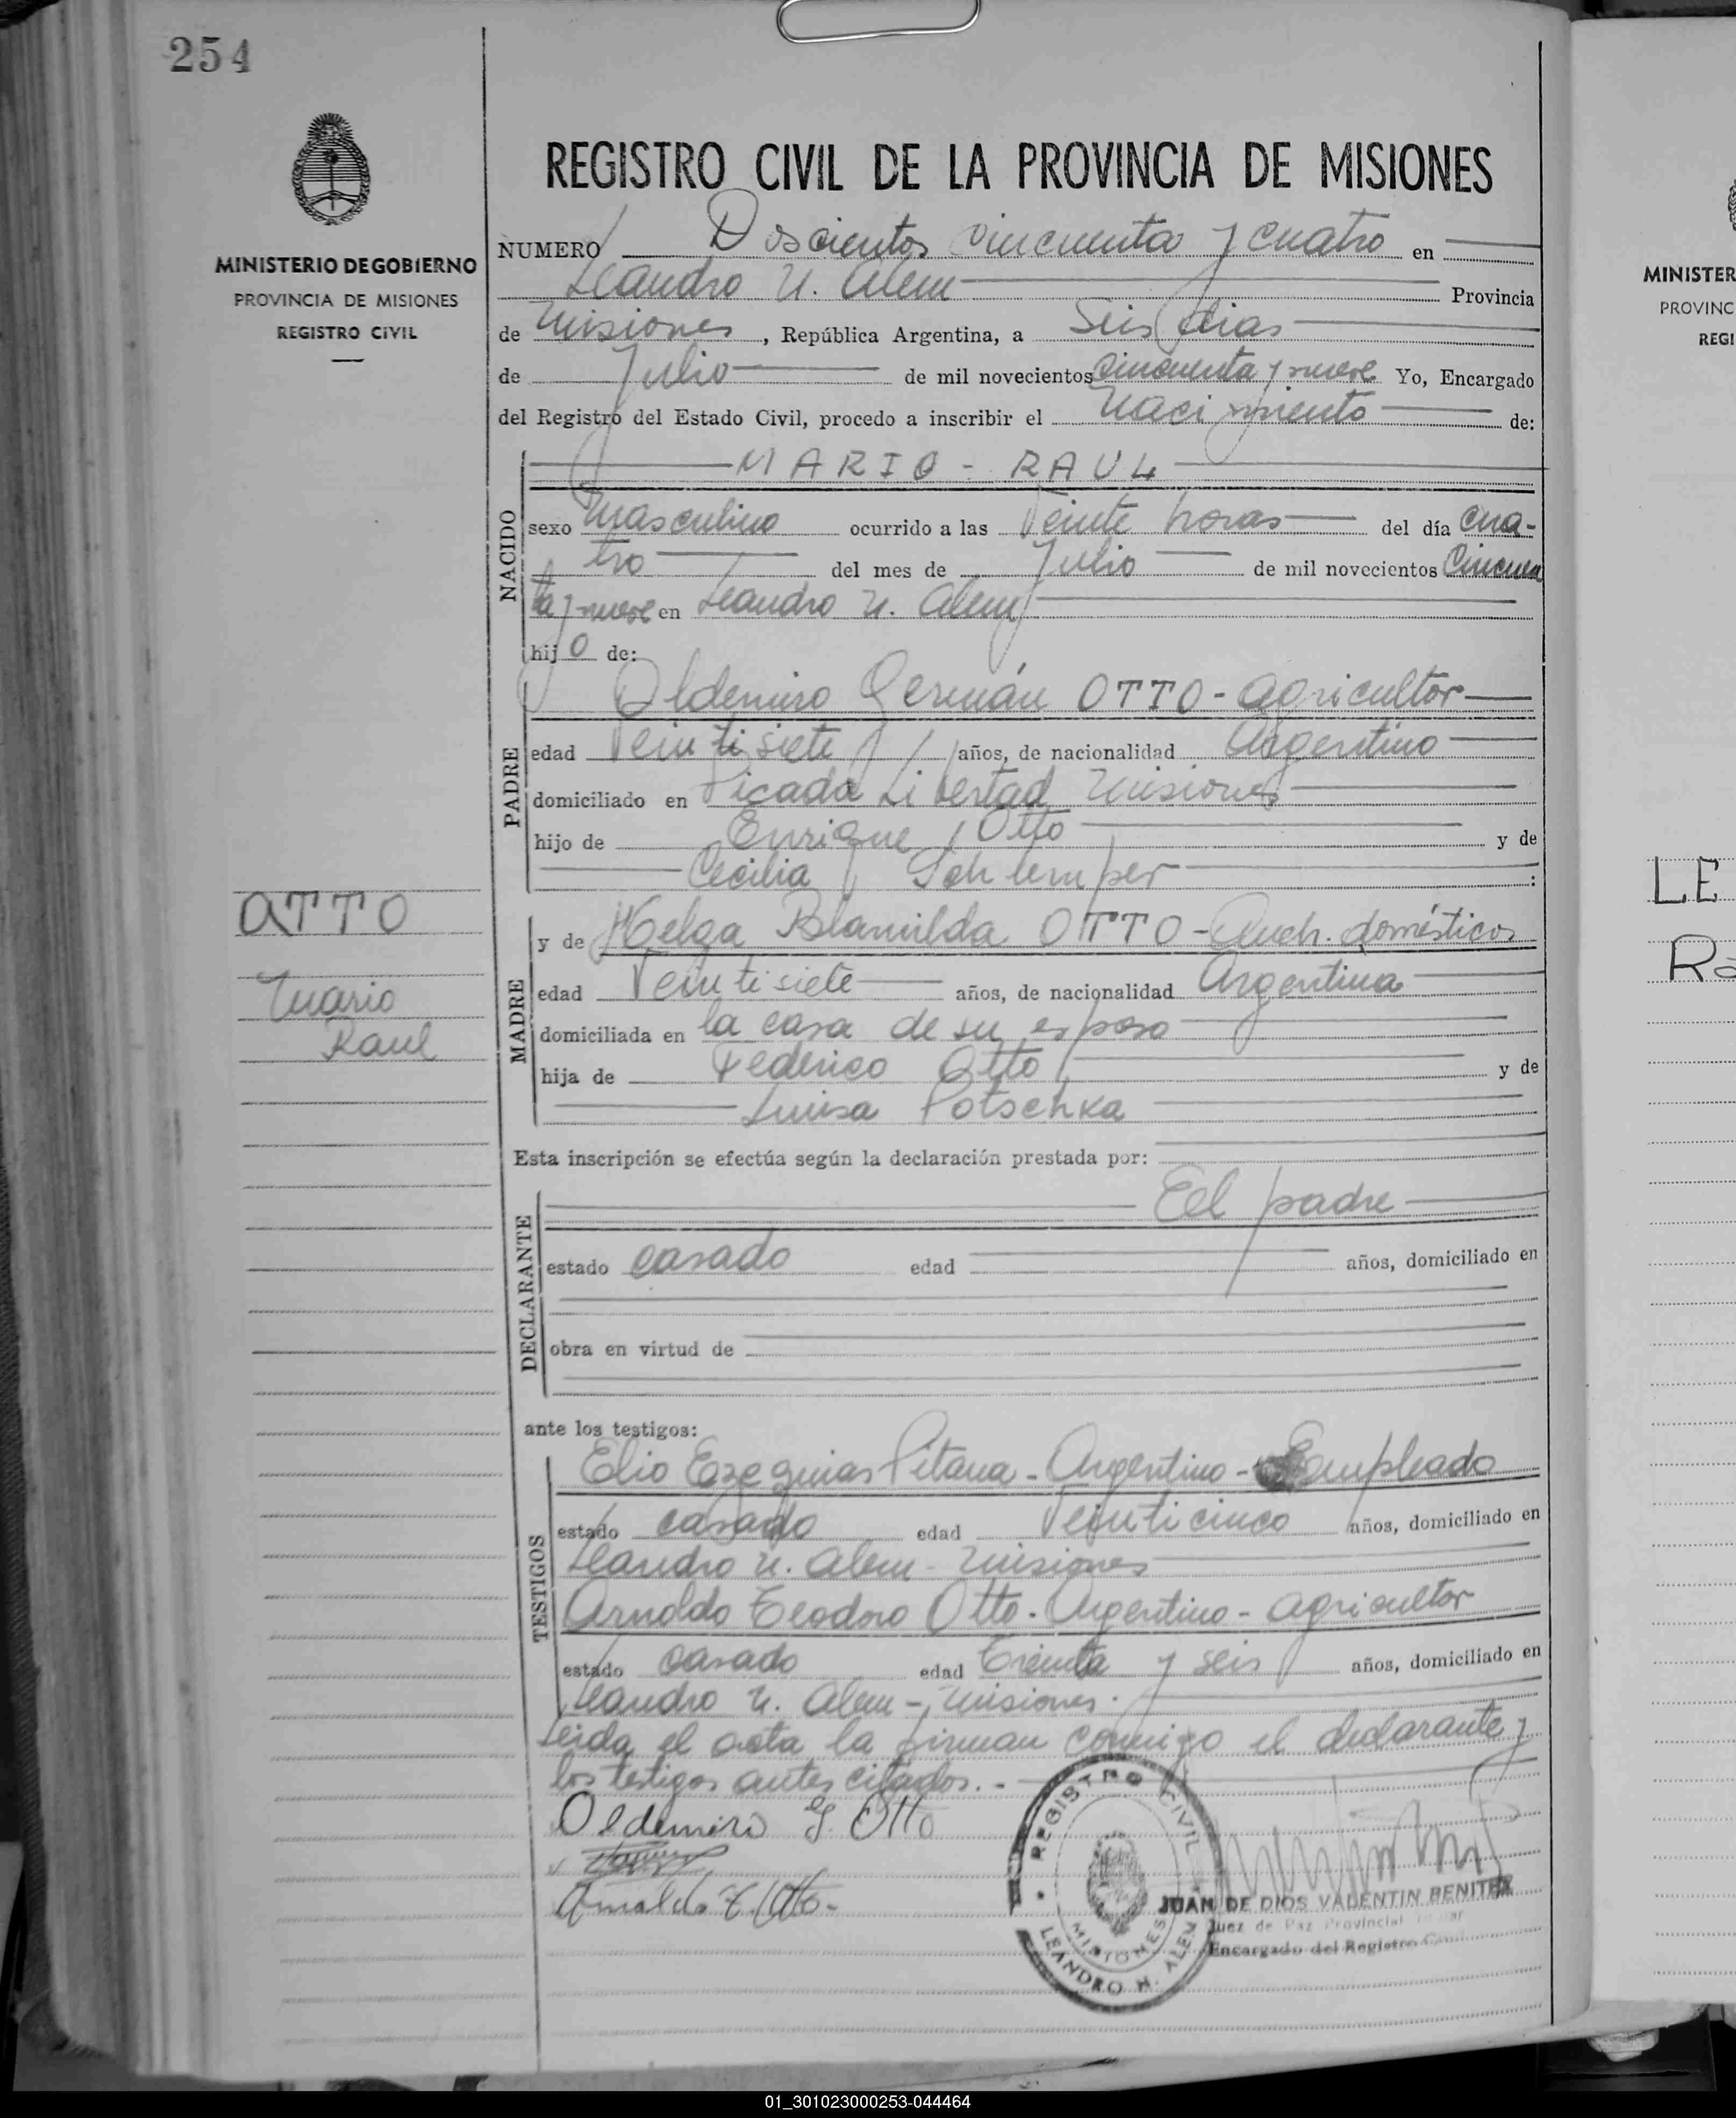 254
MINISTERIO DE GOBIERNO
PROVINCIA DE MISIONES
REGISTRO CIVIL
OTTO
Mario
Raul
REGISTRO CIVIL DE LA PROVINCIA DE MISIONES
NUMERO Doscientos cincuenta y cuatro en
Leandro N. Alem Provincia
de Misiones, República Argentina, a Seis días
de Julio de mil novecientos cincuenta y nueve Yo, Encargado
del Registro del Estado Civil, procedo a inscribir el Nacimiento de:
NACIDO
MARIO - RAUL
sexo Masculino ocurrido a las Veinte horas del día cua-
tro del mes de Julio de mil novecientos Cincuen
ta y nueve en Leandro N. Alem
hijo de:
PADRE
Oldemiro Germán OTTO - Agricultor
edad Veintisiete años, de nacionalidad Argentino
domiciliado en Picada Libertad Misiones
hijo de Enrique Otto y de
Cecilia Schlemper :
MADRE
y de Helga Blamilda OTTO - Queh. domésticos
edad Veintisiete años, de nacionalidad Argentina
domiciliada en la casa de su esposo
hija de Federico Otto y de
Luisa Potschka
Esta inscripción se efectúa según la declaración prestada por:
DECLARANTE
El padre
estado casado edad años, domiciliado en
obra en virtud de
ante los testigos:
TESTIGOS
Elio Ezequias Pitana - Argentino - Empleado
estado casado edad Veinticinco años, domiciliado en
Leandro N. Alem - Misiones
Arnoldo Teodoro Otto - Argentino - Agricultor
estado casado edad Treinta y seis años, domiciliado en
Leandro N. Alem - Misiones.
Leida el acta la firman conmigo el declarante y
los testigos antes citados. -
Oldemiro G. Otto
Arnoldo T. Otto -
REGISTRO CIVIL
MISIONES
LEANDRO N. ALEM
JUAN DE DIOS VALENTIN BENITEZ
Juez de Paz Provincial
Encargado del Registro Civil
MINISTER
PROVINC
REGI
LE
Ra
01_301023000253-044464